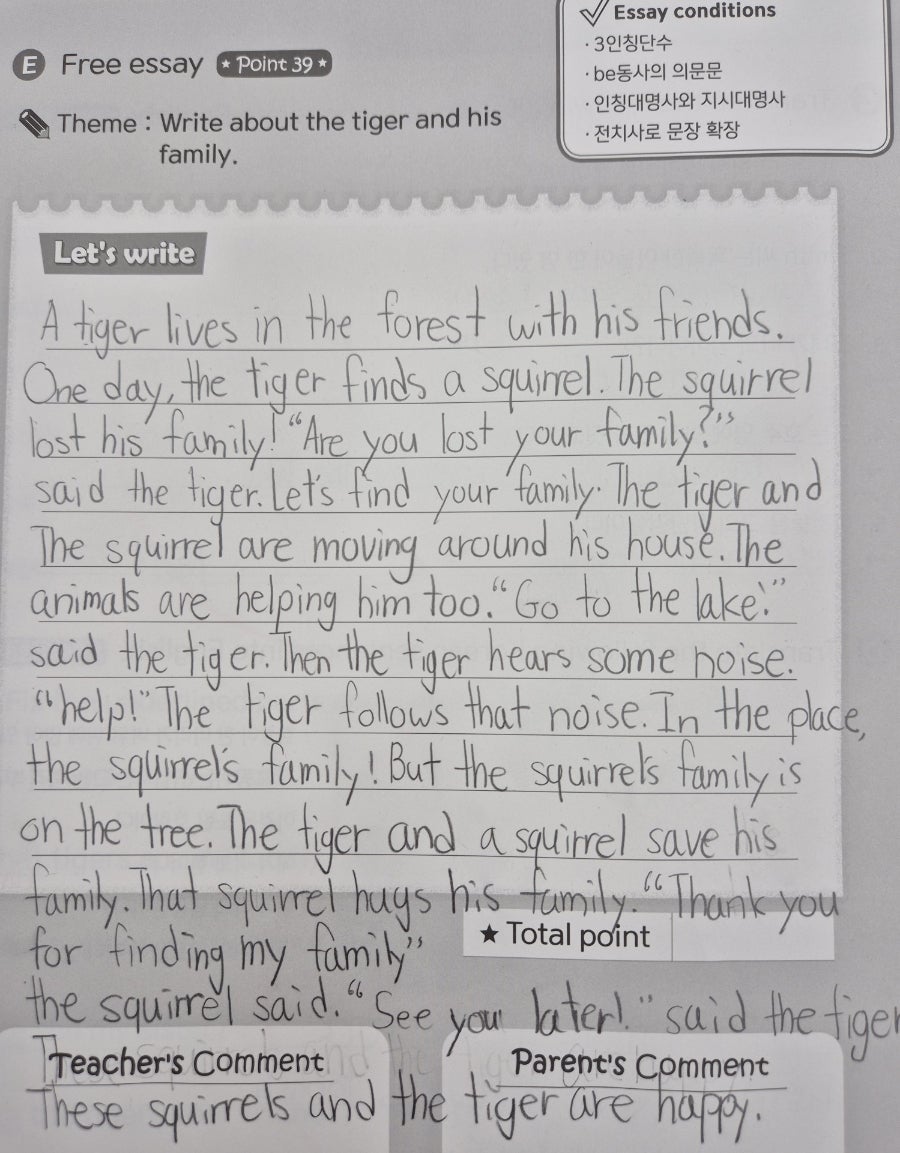 ✓ Essay conditions
· 3인칭단수
· be동사의 의문문
· 인칭대명사와 지시대명사
· 전치사로 문장 확장
E Free essay ★ Point 39 ★
Theme : Write about the tiger and his
family.
Let's write
A tiger lives in the forest with his friends.
One day, the tiger finds a squirrel. The squirrel
lost his family! “Are you lost your family?”
said the tiger. Let's find your family. The tiger and
The squirrel are moving around his house. The
animals are helping him too. “Go to the lake.”
said the tiger. Then the tiger hears some noise.
“help!” The tiger follows that noise. In the place,
the squirrel's family! But the squirrel's family is
on the tree. The tiger and a squirrel save his
family. That squirrel hugs his family. “Thank you
for finding my family”
★ Total point
the squirrel said. “See you later!” said the tiger
Teacher's Comment
Parent's Comment
These squirrels and the tiger are happy.